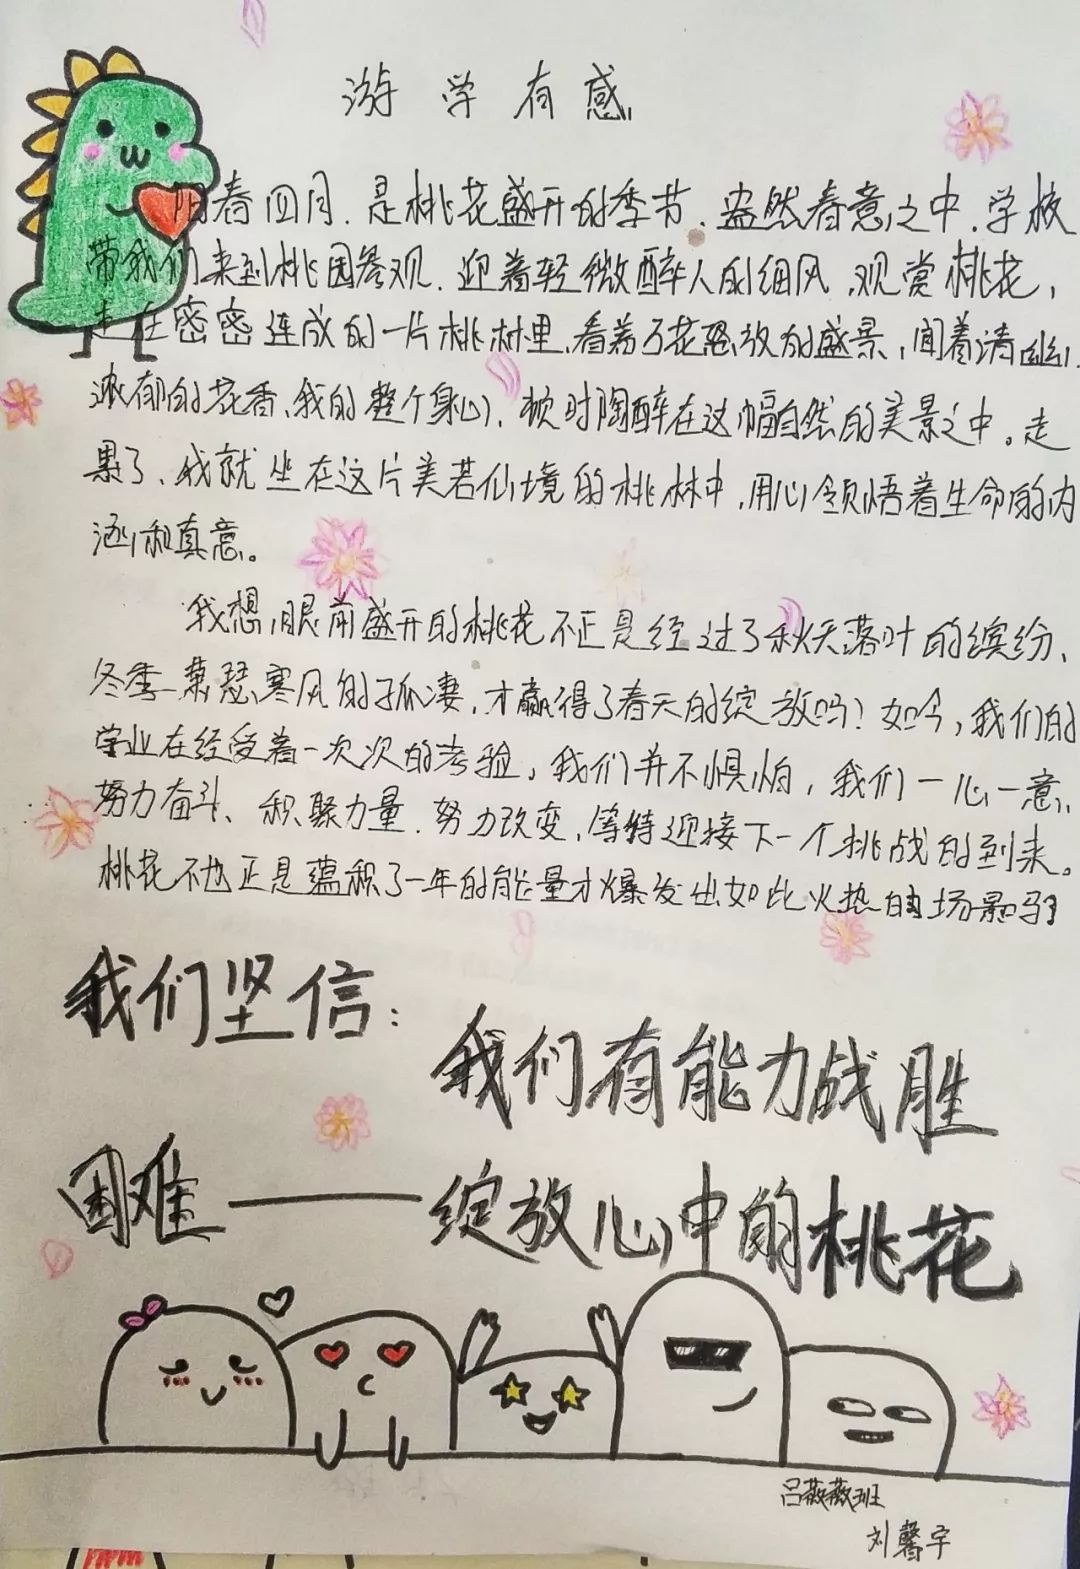 游学有感
阳春四月、是桃花盛开的季节、盎然春意之中、学校
带我们来到桃园参观、迎着轻微醉人的细风、观赏桃花，
走在密密连成的一片桃林里、看着万花怒放的盛景，闻着清幽、
浓郁的花香、我的整个身心、顿时陶醉在这幅自然的美景之中。走
累了、我就坐在这片美若仙境的桃林中，用心领悟着生命的内
涵和真意。
我想，眼前盛开的桃花不正是经过了秋天落叶的缤纷、
冬季萧瑟寒风的孤凄，才赢得了春天的绽放吗？如今，我们的
学业在经受着一次次的考验，我们并不惧怕，我们一心一意、
努力奋斗、积聚力量、努力改变，等待迎接下一个挑战的到来。
桃花不也正是蕴积了一年的能量才爆发出如此火热的场景吗？
我们坚信：
我们有能力战胜
困难——绽放心中的桃花
吕薇薇班
刘馨宇